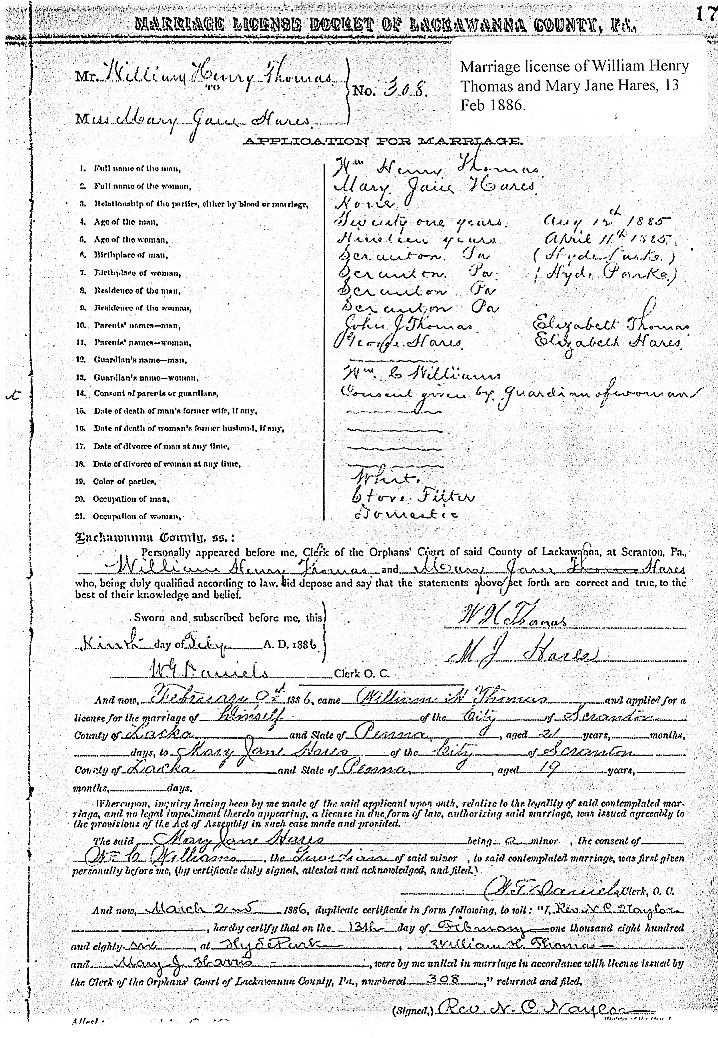 17
MARRIAGE LICENSE DOCKET OF LACKAWANNA COUNTY, PA.
Mr. William Henry Thomas
TO
Miss Mary Jane Hares
No. 308.
Marriage license of William Henry
Thomas and Mary Jane Hares, 13
Feb 1886.
APPLICATION FOR MARRIAGE.
1. Full name of the man, Wm Henry Thomas
2. Full name of the woman, Mary Jane Hares
3. Relationship of the parties, either by blood or marriage, None
4. Age of the man, Twenty one years. Aug 12th 1885
5. Age of the woman, Nineteen years. April 11th 1885.
6. Birthplace of man, Scranton Pa (Hyde Parke)
7. Birthplace of woman, Scranton Pa. (Hyde Parke)
8. Residence of the man, Scranton Pa
9. Residence of the woman, Scranton Pa
10. Parents' names—man, John J Thomas. Elizabeth Thomas
11. Parents' names—woman, George Hares Elizabeth Hares
12. Guardian's name—man,
13. Guardian's name—woman, Wm C Williams
14. Consent of parents or guardians, Consent given by Guardian of woman
15. Date of death of man's former wife, if any,
16. Date of death of woman's former husband, if any,
17. Date of divorce of man at any time,
18. Date of divorce of woman at any time,
19. Color of parties, White
20. Occupation of man, Stove Fitter
21. Occupation of woman, Domestic
Lackawanna County, ss.:
Personally appeared before me, Clerk of the Orphans' Court of said County of Lackawanna, at Scranton, Pa.,
William Henry Thomas and Mary Jane Thomas Hares
who, being duly qualified according to law, did depose and say that the statements above set forth are correct and true, to the
best of their knowledge and belief.
Sworn and subscribed before me, this
Ninth day of Feby A. D. 1886
W H Thomas
M J Hares
Clerk O. C.
And now, February 1886, came William H Thomas and applied for a
license for the marriage of himself of the City of Scranton
County of Lacka and State of Penna, aged 21 years, months,
days, to Mary Jane Hares of the City of Scranton
County of Lacka and State of Penna, aged 19 years,
months, days.
Whereupon, inquiry having been by me made of the said applicant upon oath, relative to the legality of said contemplated mar-
riage, and no legal impediment thereto appearing, a license in due form of law, authorizing said marriage, was issued agreeably to
the provisions of the Act of Assembly in such case made and provided.
The said Mary Jane Hares being a minor, the consent of
Wm C Williams, the Guardian of said minor, to said contemplated marriage, was first given
personally before me, (by certificate duly signed, attested and acknowledged, and filed.)
Daniels Clerk, O. C.
And now, March 2nd 1886, duplicate certificate in form following, to wit: "I, Rev N C Naylor
, hereby certify that on the 13th day of February one thousand eight hundred
and eighty six, at Hyde Park, William H. Thomas
and Mary J Harris, were by me united in marriage in accordance with license issued by
the Clerk of the Orphans' Court of Lackawanna County, Pa., numbered 308," returned and filed.
(Signed,) Rev. N. C. Naylor